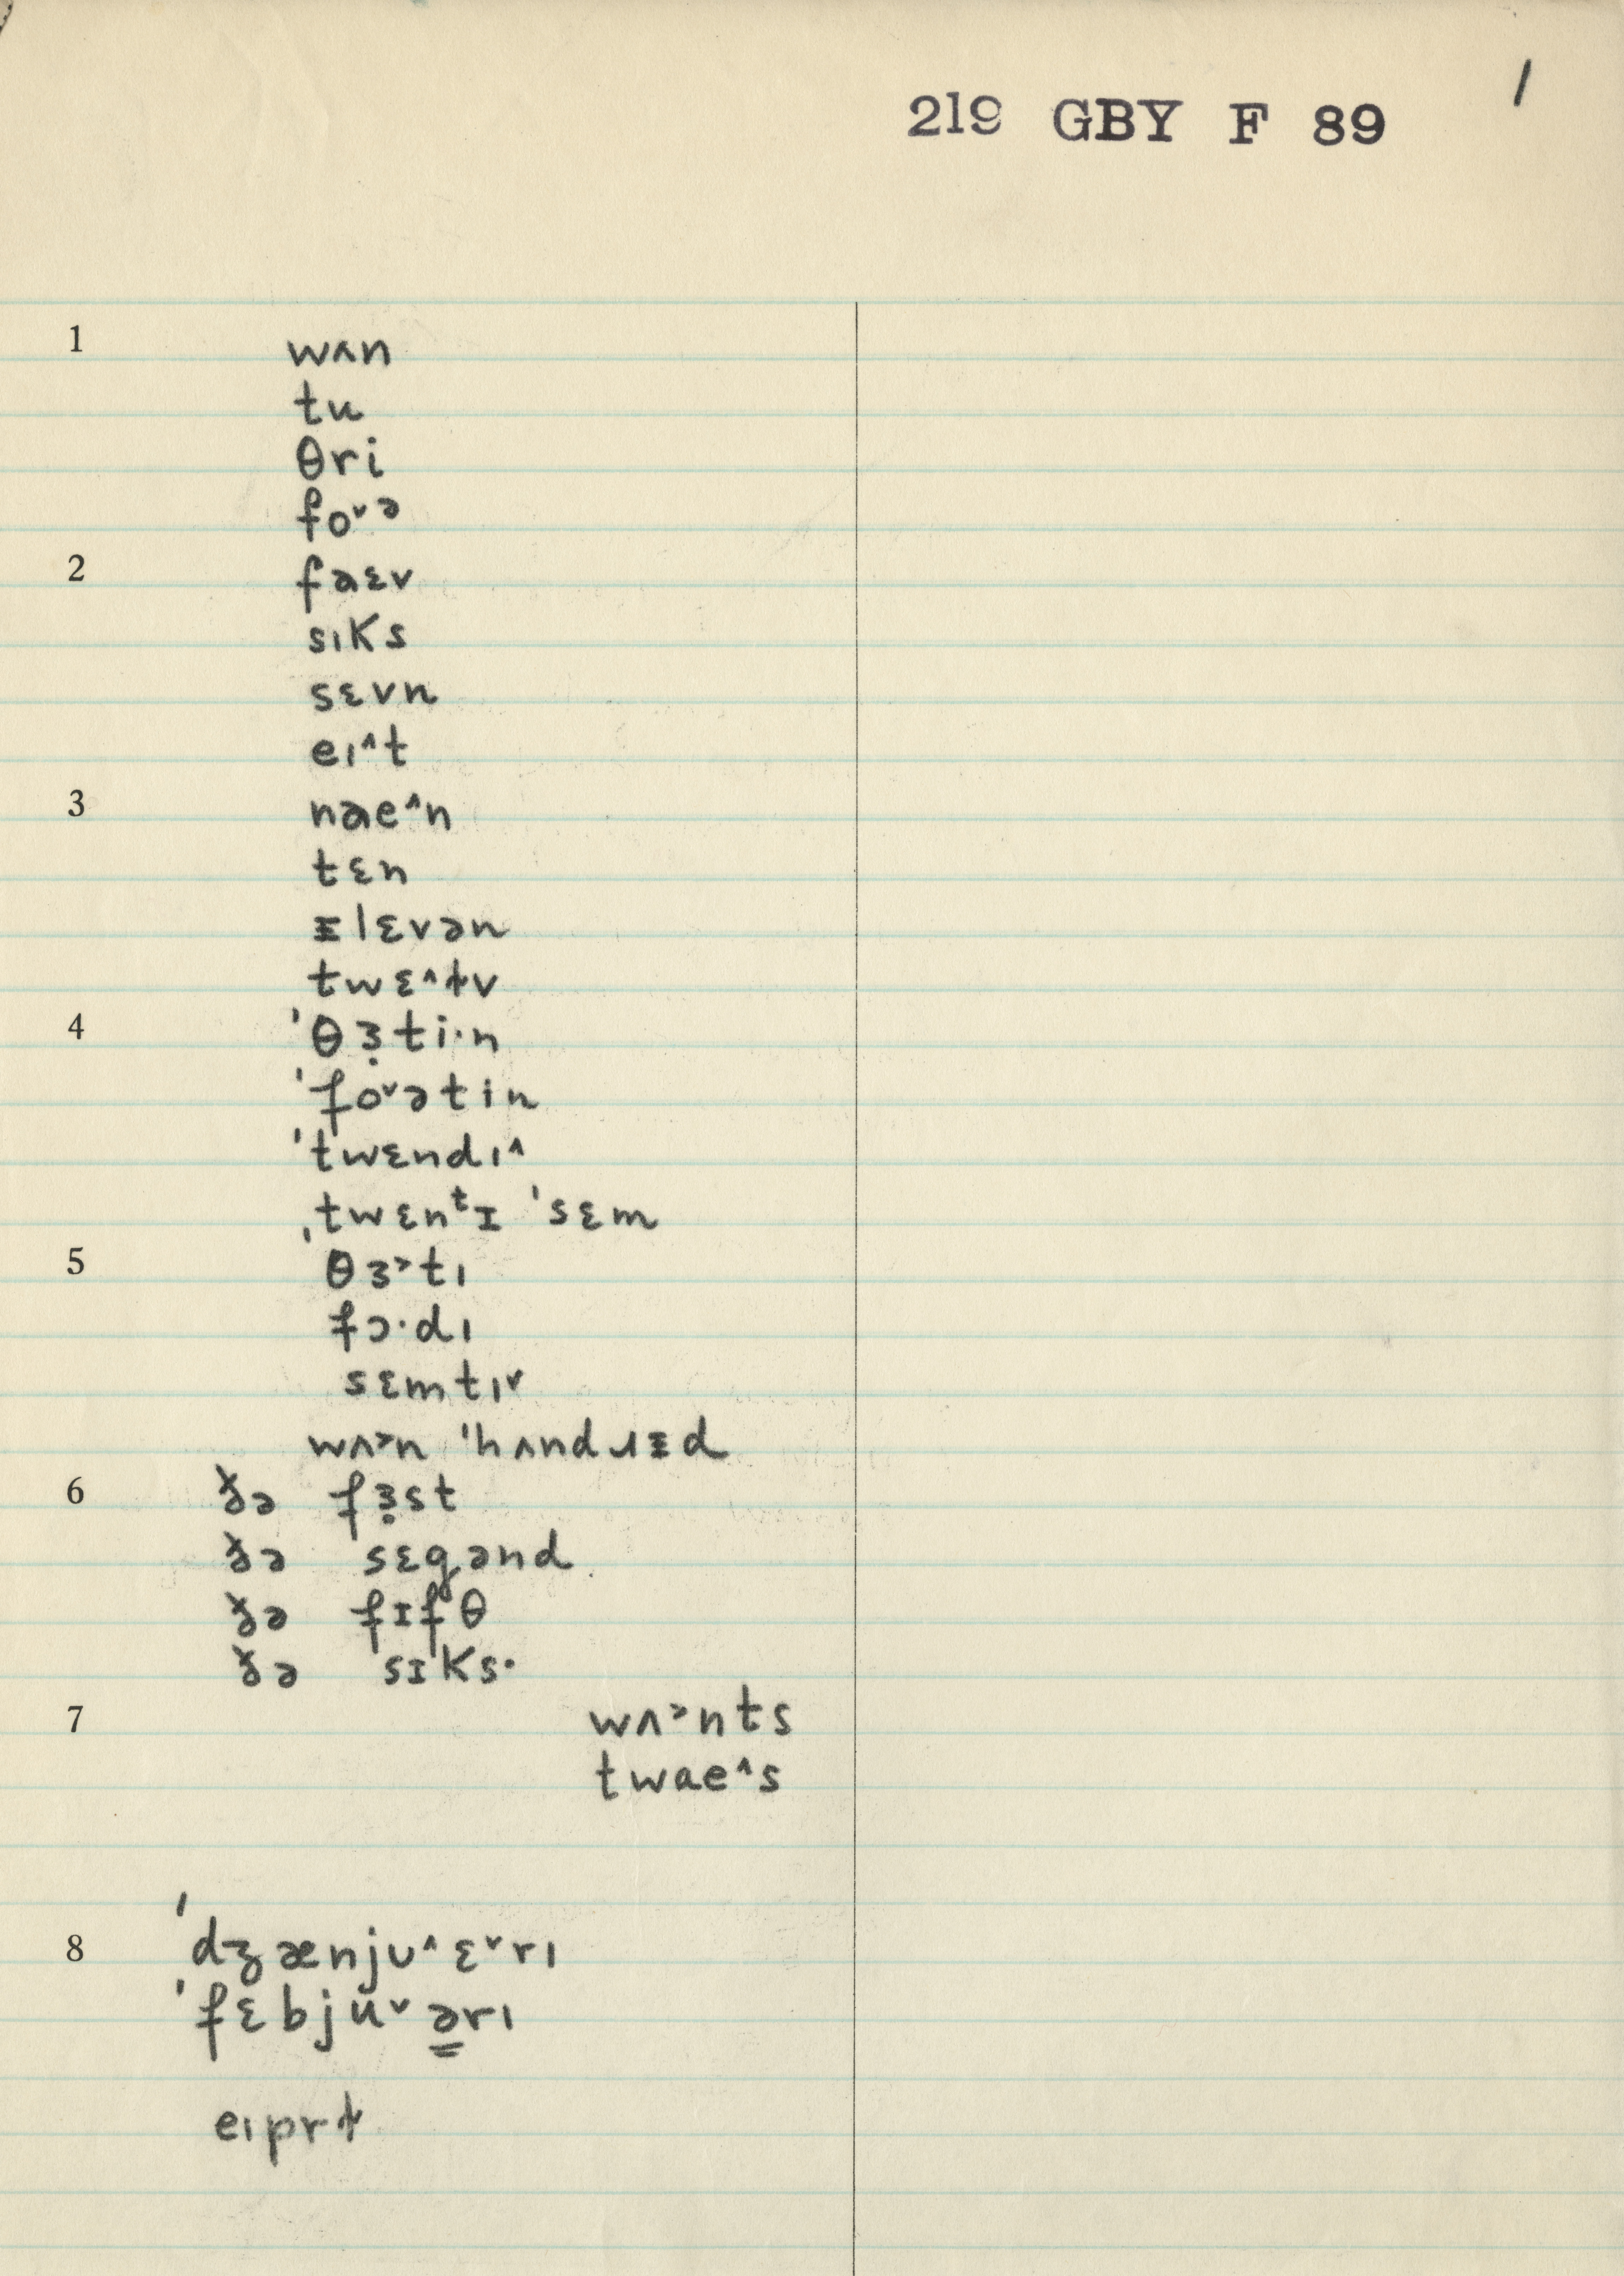 1
219 GBY F 89
1 wʌn
tu
θri
fo˅ə
2 faɛv
sıks
sɛvn
eı^t
3 nae^n
tɛn
ᵻlɛvən
twɛ^tv
4 ˈθɜ̣ti·n
ˈfo˅ətin
ˈtwɛndı^
ˌtwɛnᵗɪ ˈsɛm
5 θɜ˃tı
fɔ·dı
sɛmtı˅
wʌ˃n ˈhʌndɹᵻd
6 ðə fɜ̣st
ðə sɛgənd
ðə fɪfθ
ðə sɪks·
7 wʌ˃nts
twae^s
8 ˈdʒænjʊ^ɛ˅rı
ˈfɛbju˅ə̳rı
eıprɫ